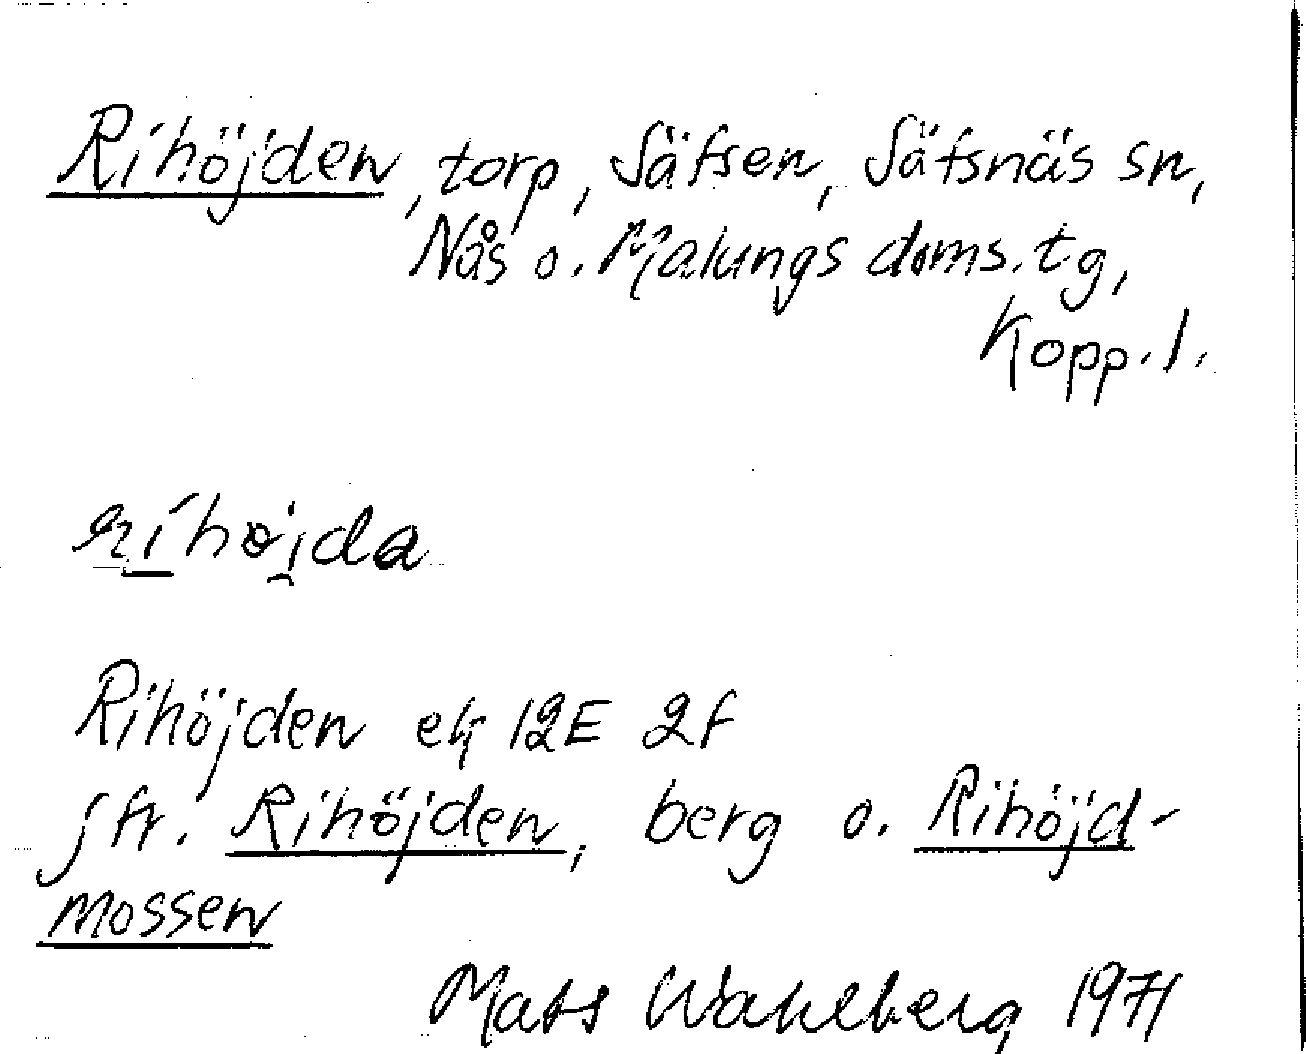 Rihöjden, torp, Säfsen, Säfsnäs sn,
Nås o. Malungs doms.tg,
Kopp. l.
rihøjda
Rihöjden ek 12E 2f
jfr. Rihöjden, berg o. Rihöjd-
mossen
Mats Wahlberg 1971